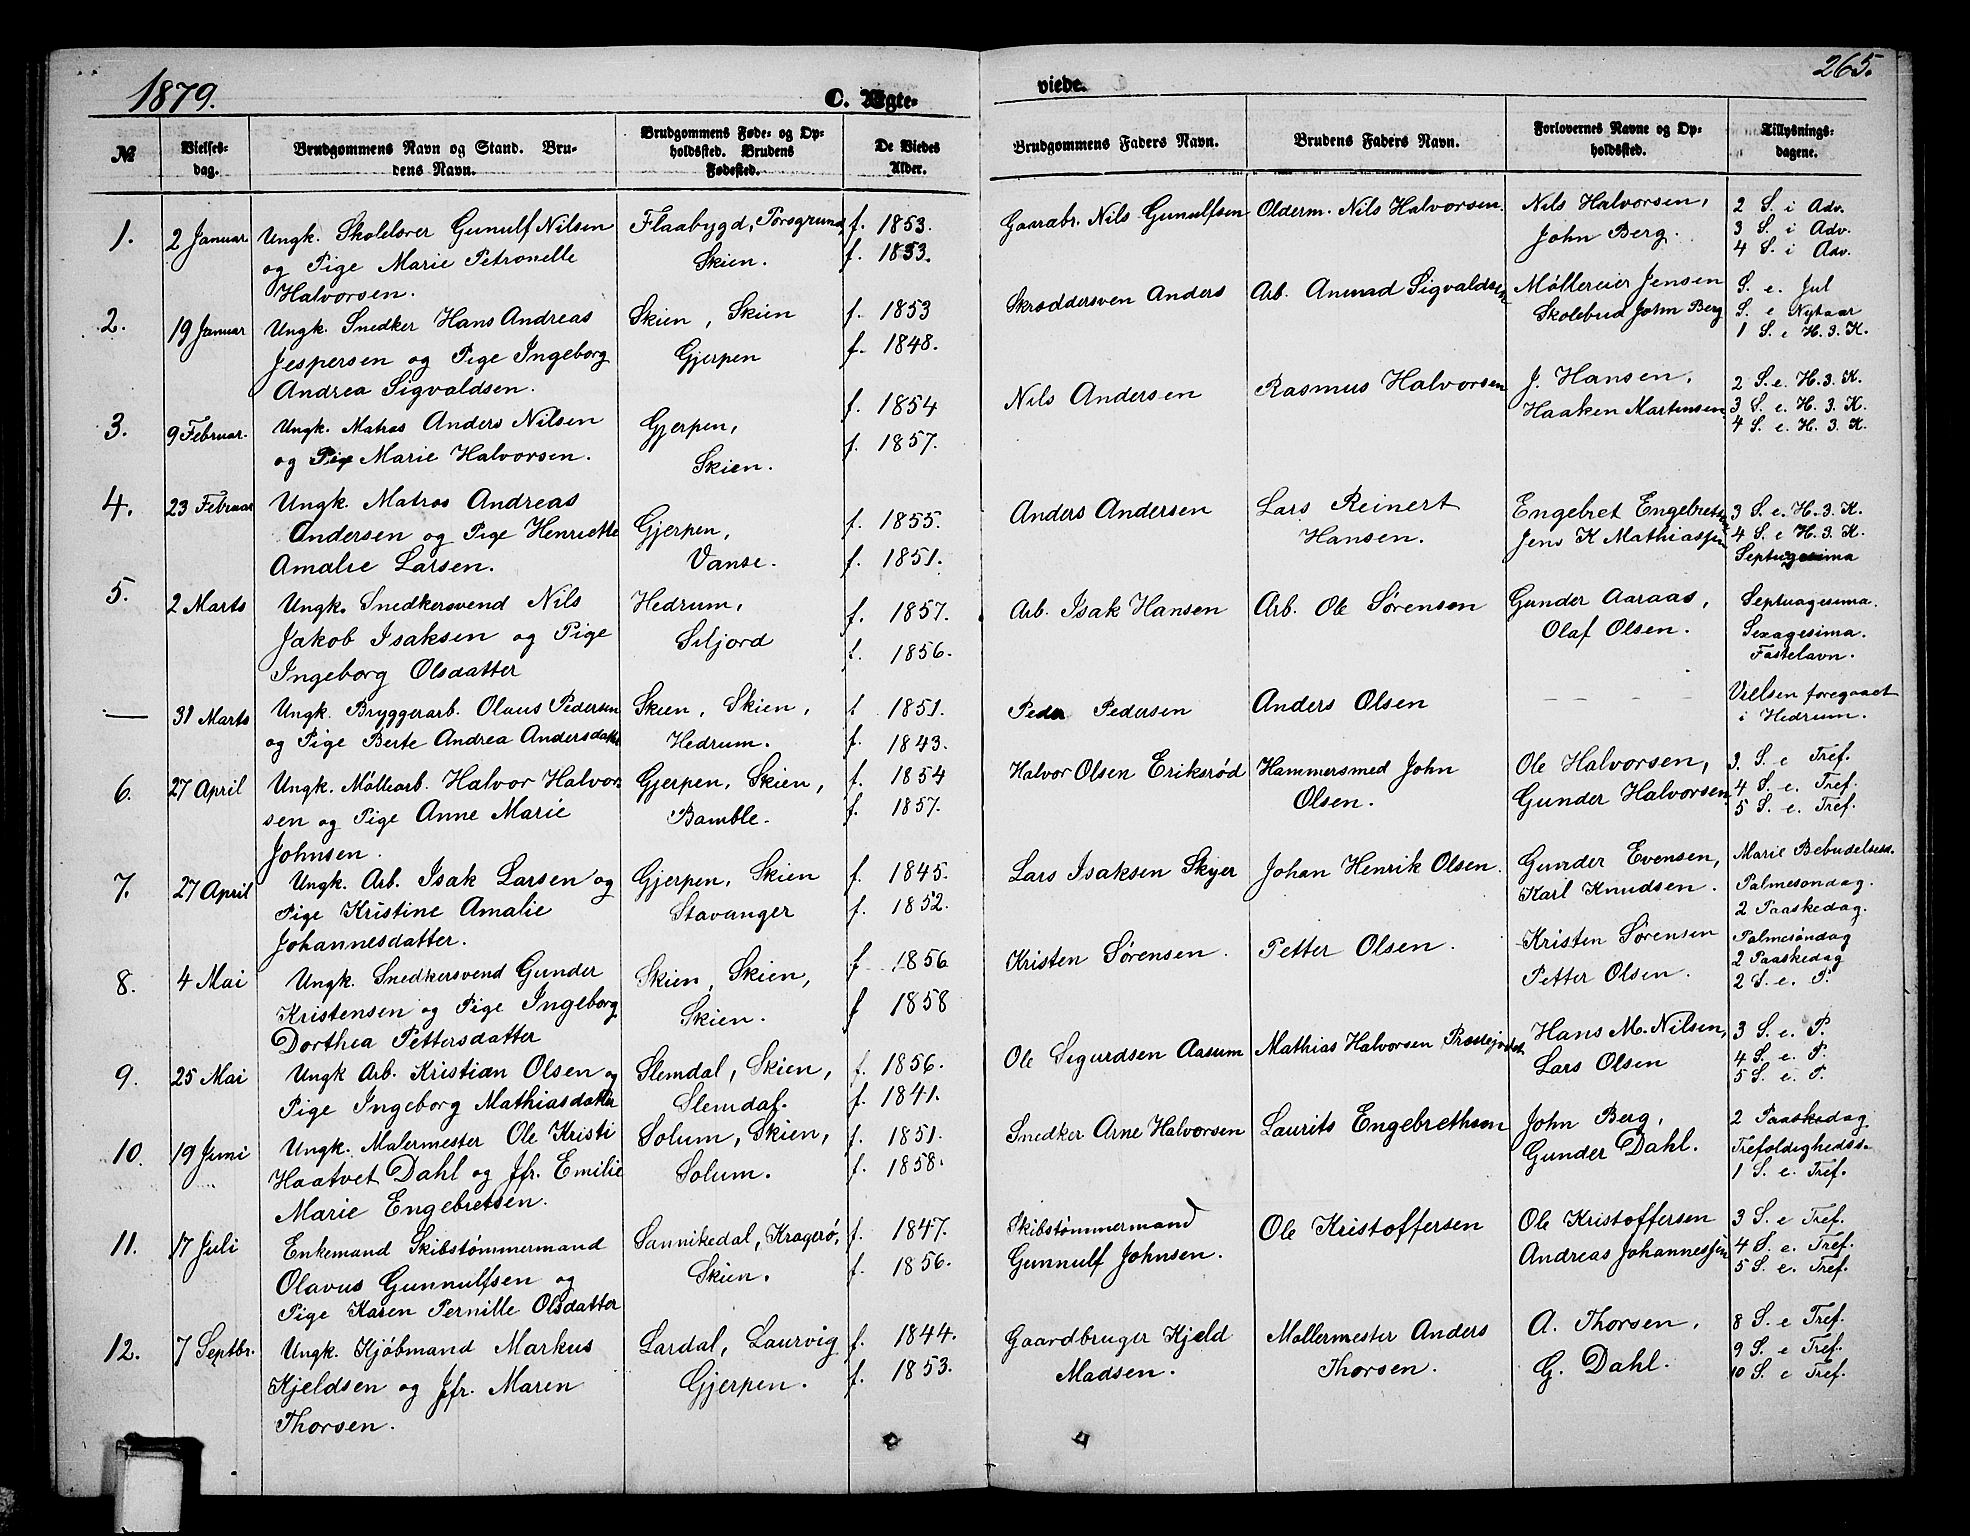 1879.
C. Ægte-
viede.
265.
№
Vielses-
dag.
Brudgommens Navn og Stand. Bru-
dens Navn.
Brudgommens Føde- og Op-
holdssted. Brudens
Fødested.
De Viedes
Alder.
Brudgommens Faders Navn.
Brudens Faders Navn.
Forlovernes Navne og Op-
holdssted.
Tillysnings-
dagene.
1. 2 Januar Ungk. Skolelærer Gunulf Nilsen Flaabygd, Porsgrund, f. 1853. Gaardbr. Nils Gunulfsen Olderm. Nils Halvorsen. Nils Halvorsen, 2 S. i Adv.
og Pige Marie Petronelle Skien. f. 1853. John Berg. 3 S. i Adv.
Halvorsen. 4 S. i Adv.
2. 19 Januar Ungk. Snedker Hans Andreas Skien, Skien f. 1853 Skræddersven Anders Arb. Amund Sigvaldsen Møllereier Jensen S. e. Jul
Jespersen og Pige Ingeborg Gjerpen f. 1848. Skolebud John Berg S. e Nytaar
Andrea Sigvaldsen. 1 S. e H. 3. K.
3. 9 Februar. Ungk. Matros Anders Nilsen Gjerpen, f. 1854 Nils Andersen Rasmus Halvorsen J. Hansen, 2 S. e. H. 3. K.
og Pige Marie Halvorsen. Skien. f. 1857. Haaken Martinsen 3 S. e. H. 3. K.
4 S. e. H. 3. K.
4. 23 Februar Ungk. Matros Andreas Gjerpen, f. 1855. Anders Andersen Lars Reinert Engebret Engebretsen 3 S. e. H. 3. K.
Andersen og Pige Henriette Vanse. f. 1851. Hansen. Jens K Mathiassen 4 S. e H. 3. K.
Amalie Larsen. Septuagesima
5. 2 Marts Ungk. Snedkersvend Nils Hedrum, f. 1857. Arb. Isak Hansen Arb. Ole Sørensen Gunder Aaraas, Septuagesima.
Jakob Isaksen og Pige Siljord f. 1856. Olaf Olsen. Sexagesima.
Ingeborg Olsdatter Fastelavn.
— 31 Marts Ungk. Bryggerarb. Olaus Pedersen Skien, Skien, f 1851. Peder Pedersen Anders Olsen — — — Vielsen foregaaet
og Pige Berte Andrea Andersdatter Hedrum. f. 1843. i Hedrum.
6. 27 April Ungk. Møllearb. Halvor Halvor- Gjerpen, Skien, f. 1854 Halvor Olsen Eriksrød Hammersmed John Ole Halvorsen, 3. S. e Tref.
sen og Pige Anne Marie Bamble. f. 1857. Olsen. Gunder Halvorsen 4 S. e. Tref.
Johnsen. 5 S. e. Tref.
7. 27 April Ungk. Arb. Isak Larsen og Gjerpen, Skien f. 1845. Lars Isaksen Skyer Johan Henrik Olsen. Gunder Evensen, Marie Bebudelsesd.
Pige Kristine Amalie Stavanger f. 1852. Karl Knudsen. Palmesøndag.
Johannesdatter. 2 Paaskedag.
8. 4 Mai Ungk. Snedkersvend Gunder Skien, Skien, f. 1856 Kristen Sørensen. Petter Olsen. Kristen Sørensen Palmesøndag
Kristensen og Pige Ingeborg Skien. f 1858 Petter Olsen. 2 Paaskedag
Dorthea Pettersdatter 2 S. e. P.
9. 25 Mai Ungk Arb. Kristian Olsen og Slemdal, Skien, f. 1856. Ole Sigurdsen Aasum Mathias Halvorsen Hans M. Nilsen, 3 S. e. P.
Pige Ingeborg Mathiasdatter Slemdal. f. 1841. Lars Olsen 4 S. e. P.
5 S. e. P.
10. 19 Juni Ungk. Malermester Ole Kristi Solum, Skien, f. 1851. Snedker Arne Halvorsen Laurits Engebrethsen John Berg, 2 Paaskedag
Haatvet Dahl og Jfr. Emilie Solum. f. 1858. Gunder Dahl. Trefoldighedss.
Marie Engebretsen. 1 S. e. Tref.
11. 17 Juli Enkemand Skibstømmermand Sannikedal, Kragerø, f. 1847. Skibstømmermand Ole Kristoffersen Ole Kristoffersen 3 S. e Tref.
Olavus Gunnulfsen og Skien. f. 1856. Gunnulf Johnsen. Andreas Johannessen 4 S. e. Tref.
Pige Karen Pernille Olsdatter 5 S. e. Tref.
12. 7 Septbr. Ungk. Kjøbmand Markus Lardal, Laurvig f. 1844. Gaardbruger Kjeld Møllermester Anders A. Thorsen, 8 S. e Tref.
Kjeldsen og Jfr. Maren Gjerpen. f. 1853. Madsen. Thorsen. G. Dahl. 9 S. e Tref.
Thorsen. 10 S. e Tref.